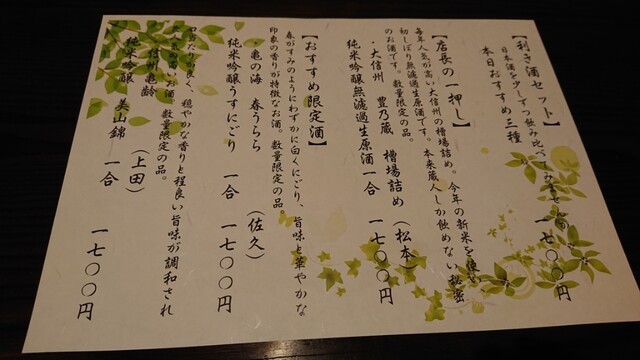 【利き酒セット】
日本酒を少しずつ飲み比べてみませんか
本日おすすめ三種 一七〇〇円
【店長の一押し】
毎年人気が高い大信州の槽場詰め。今年の新米を使い
初しぼり無濾過生原酒です。本来蔵人しか飲めない秘密
のお酒です。数量限定の品。
・大信州 豊乃蔵 槽場詰め（松本）
純米吟醸無濾過生原酒 一合 一七〇〇円
【おすすめ限定酒】
春がすみのようにわずかに白くにごり、旨味と華やかな
印象の香りが特徴なお酒。数量限定の品。
・亀の海 春うらら（佐久）
純米吟醸うすにごり 一合 一七〇〇円
口当たりが良く、穏やかな香りと程良い旨味が調和され
人気の高いお酒。数量限定の品。
・信州亀齢（上田）
純米吟醸 美山錦 一合 一七〇〇円